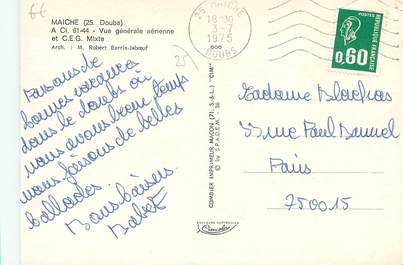 66
MAICHE (25. Doubs)
A Ci. 61-44 - Vue générale aérienne
et C.E.G. Mixte
Arch. : M. Robert Barris-Jabœuf
25
25 MAICHE
18-30
3-7
1975
DOUBS
POSTES
0,60
REPUBLIQUE FRANÇAISE
Passons de
bonnes vacances
dans le doubs où
nous avons beau temps
nous faisons de belles
ballades.
Bons baisers
COMBIER IMPRIMEUR MACON (71, S.-&-L.) "CIM"
© by S.P.A.D.E.M. - 36
Combier
Madame
33 rue Paul Barruel
Paris
750015